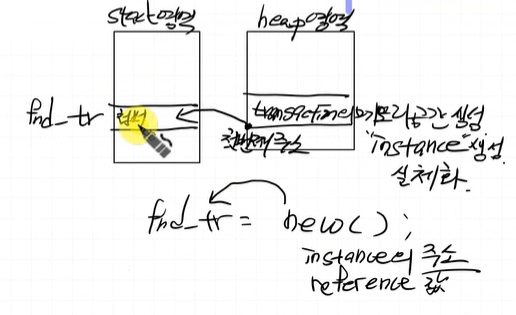 stack영역
heap영역
fnd_tr
transaction의 메모리공간 생성
첫번째 주소
"instance" 생성.
실체화.
fnd_tr = new();
instance의 주소
reference 값